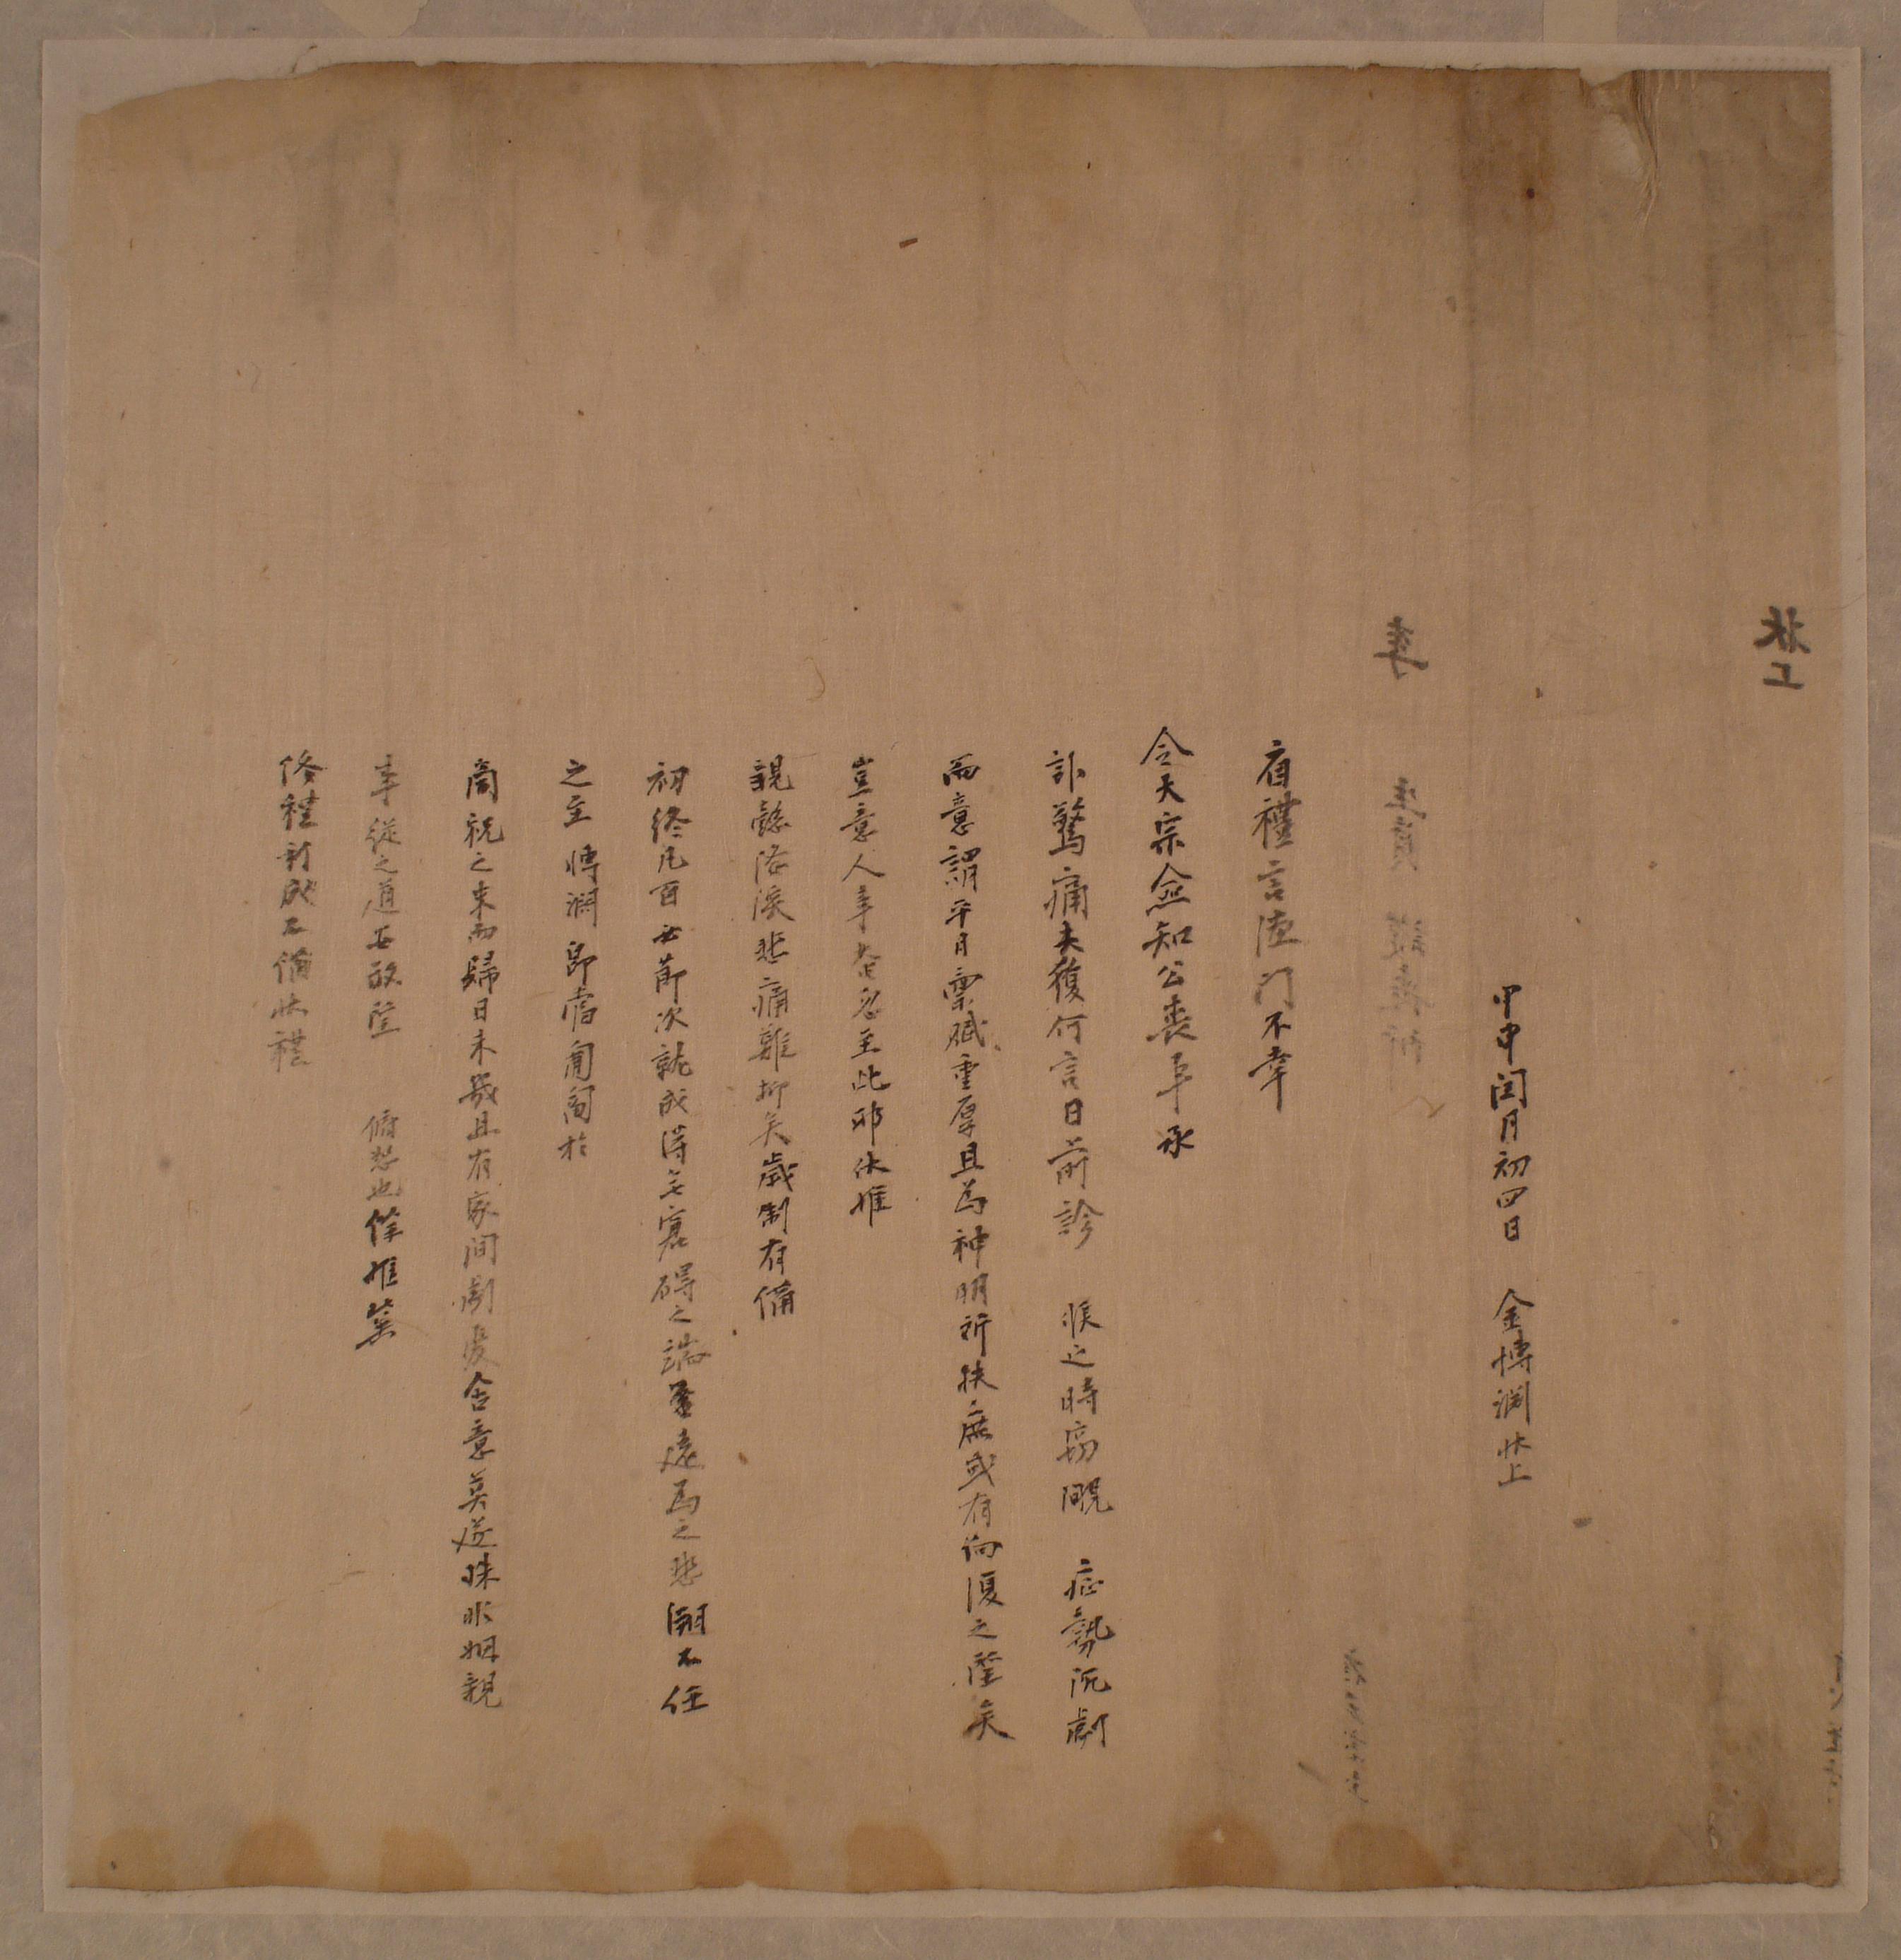 省禮言德門不幸
令大宗僉知公喪事承
訃驚痛夫復何言日前診 候之時竊覸 症勢沉劇
而意謂平日稟賦重厚且爲神明所扶庶或有向復之望矣
豈意人事奄忽至此耶伏惟
親懿隆深悲痛難抑矣歲制有備
初終凡百必節次就成得無窘碍之端 遠爲之悲溯不任
之至博淵即當匍匐於
匍祝之末而歸日未幾且有家間劇憂含意莫遂殊非姻親
事從之道安敢望 俯恕也餘惟冀
侯禮 不備狀禮
甲申閏月初四日 金博淵狀上
狀上